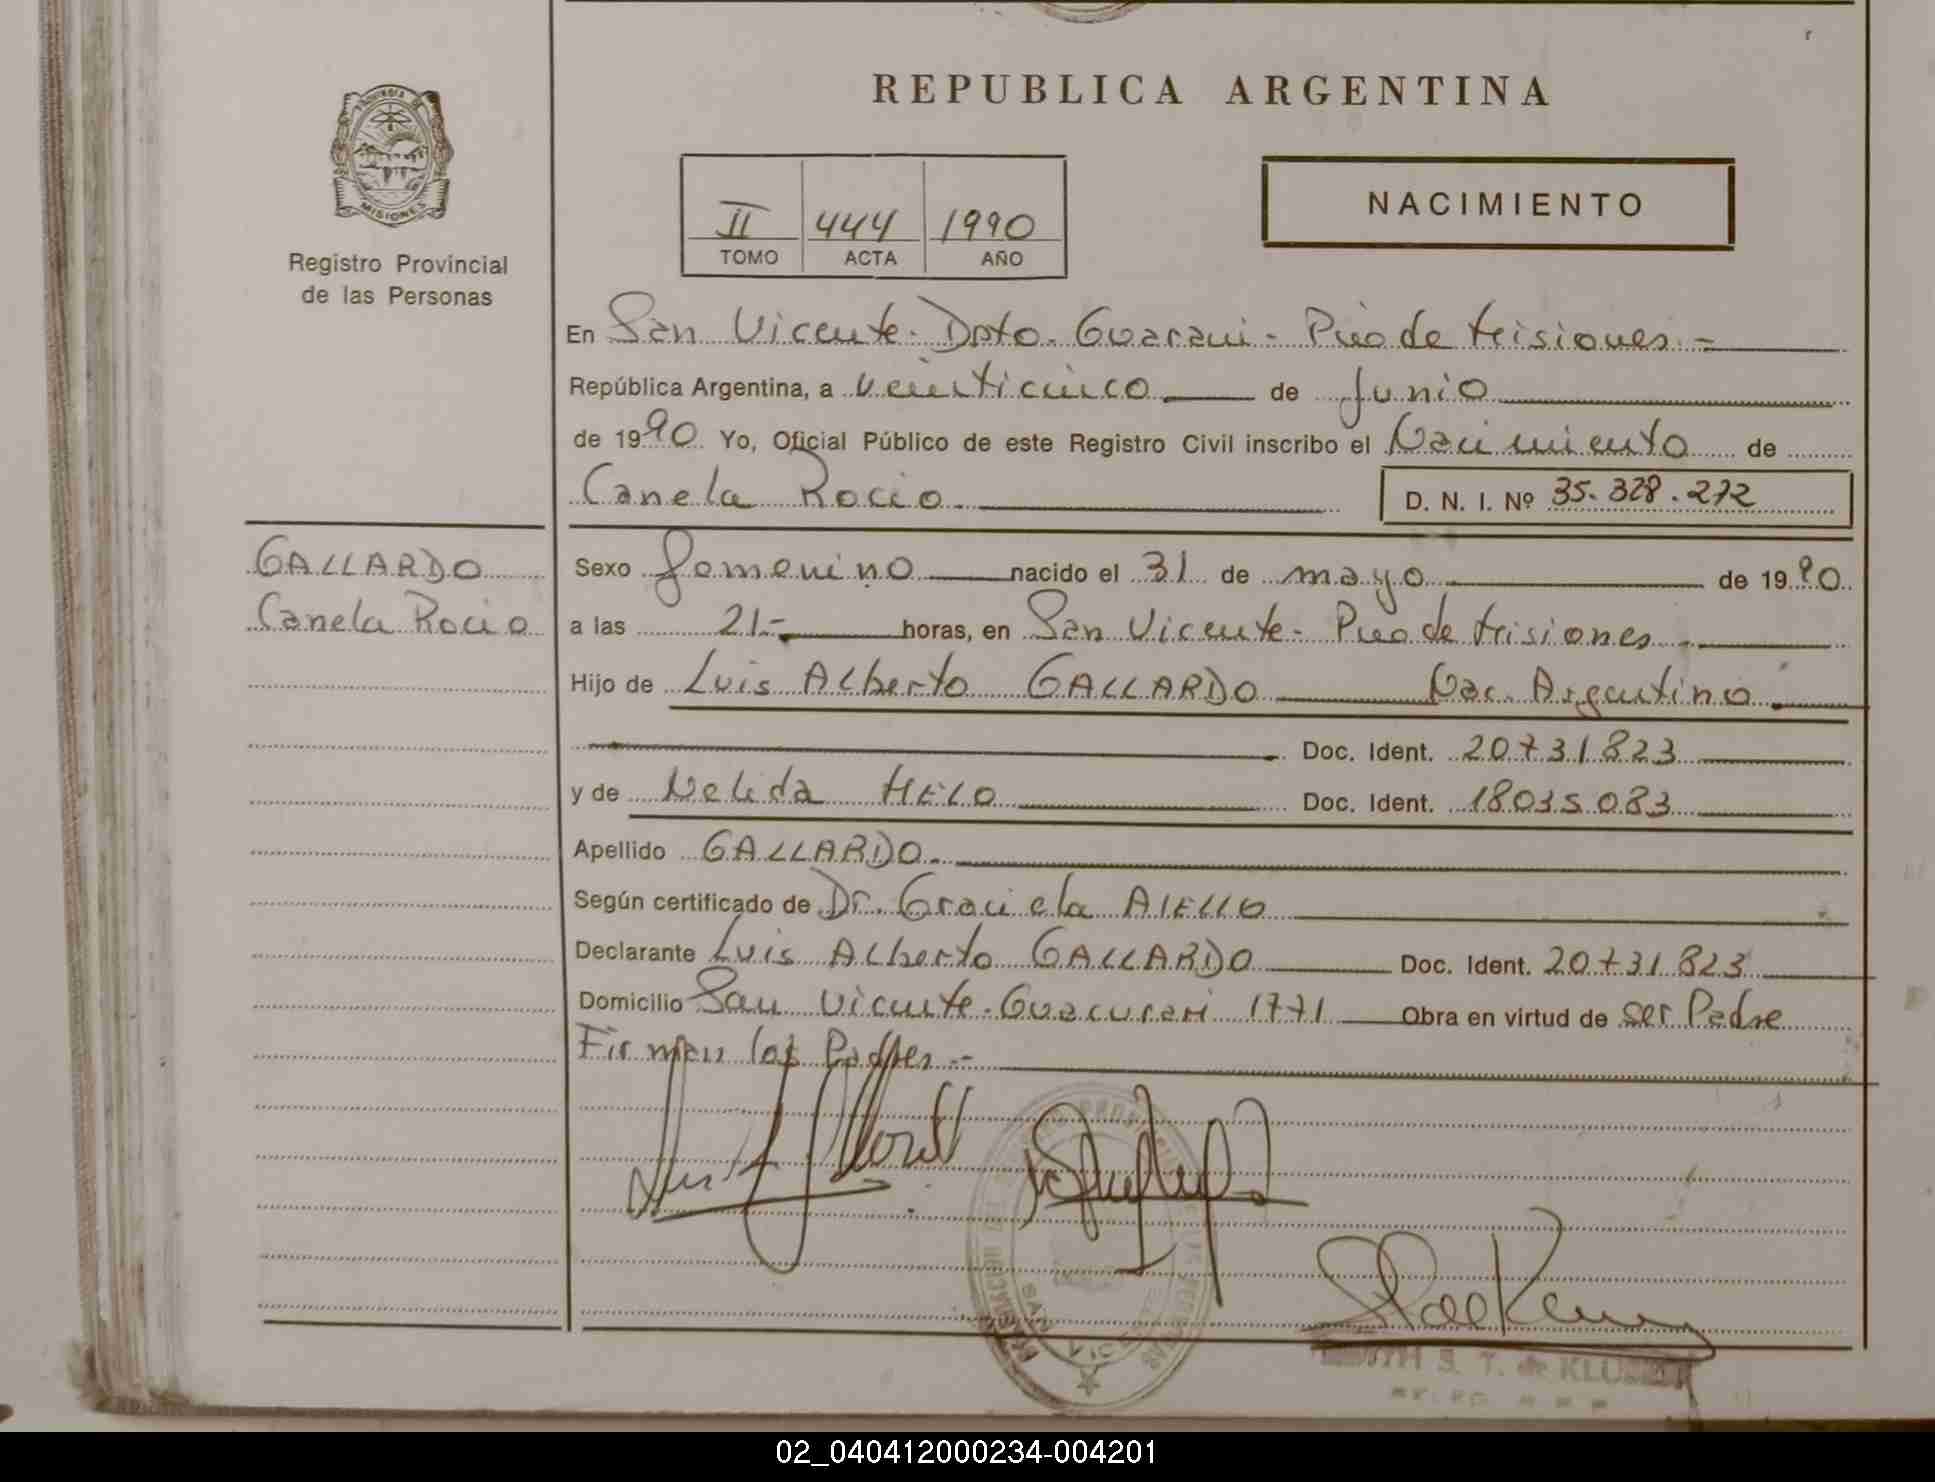 REPUBLICA ARGENTINA
PROVINCIA DE
MISIONES
Registro Provincial
de las Personas
II 444 1990
TOMO ACTA AÑO
NACIMIENTO
En San Vicente - Dpto. Guarani - Pcia de Misiones.-
República Argentina, a veinticinco de Junio
de 1990 Yo, Oficial Público de este Registro Civil inscribo el Nacimiento de
Canela Rocio.
D. N. I. Nº 35.328.272
GALLARDO
Canela Rocio
Sexo femenino nacido el 31 de mayo de 1990
a las 21.- horas, en San Vicente - Pcia de Misiones.
Hijo de Luis Alberto GALLARDO Nac. Argentino.
Doc. Ident. 20731823
y de Nelida MELO Doc. Ident. 18035083
Apellido GALLARDO.
Según certificado de Dr. Graciela AIELLO
Declarante Luis Alberto GALLARDO Doc. Ident. 20731823
Domicilio San Vicente - Guacurari 1771 Obra en virtud de ser Padre
Firman los Padres.-
S. T. de
02_040412000234-004201